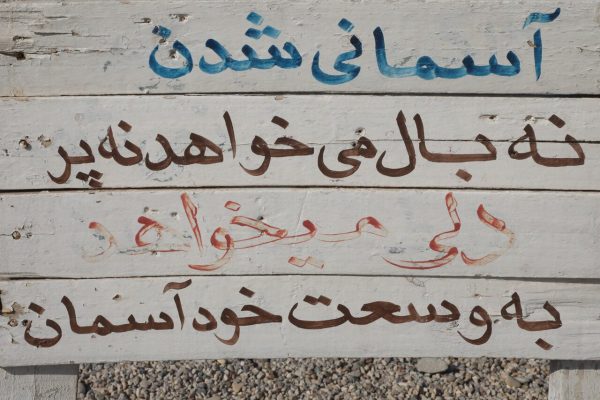 آسمانی شدن
نه بال می خواهد نه پر
دلی میخواهد
به وسعت خود آسمان